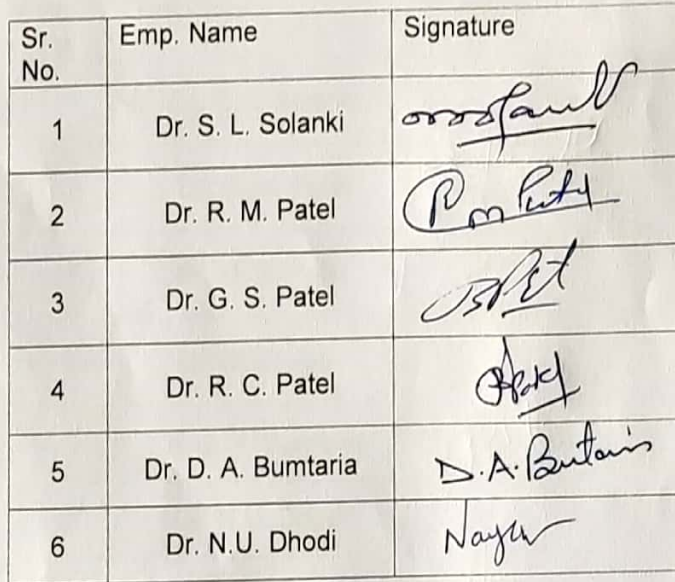 Sr. No. Emp. Name Signature
1 Dr. S. L. Solanki
2 Dr. R. M. Patel R M Patel
3 Dr. G. S. Patel
4 Dr. R. C. Patel
5 Dr. D. A. Bumtaria D.A.
6 Dr. N.U. Dhodi